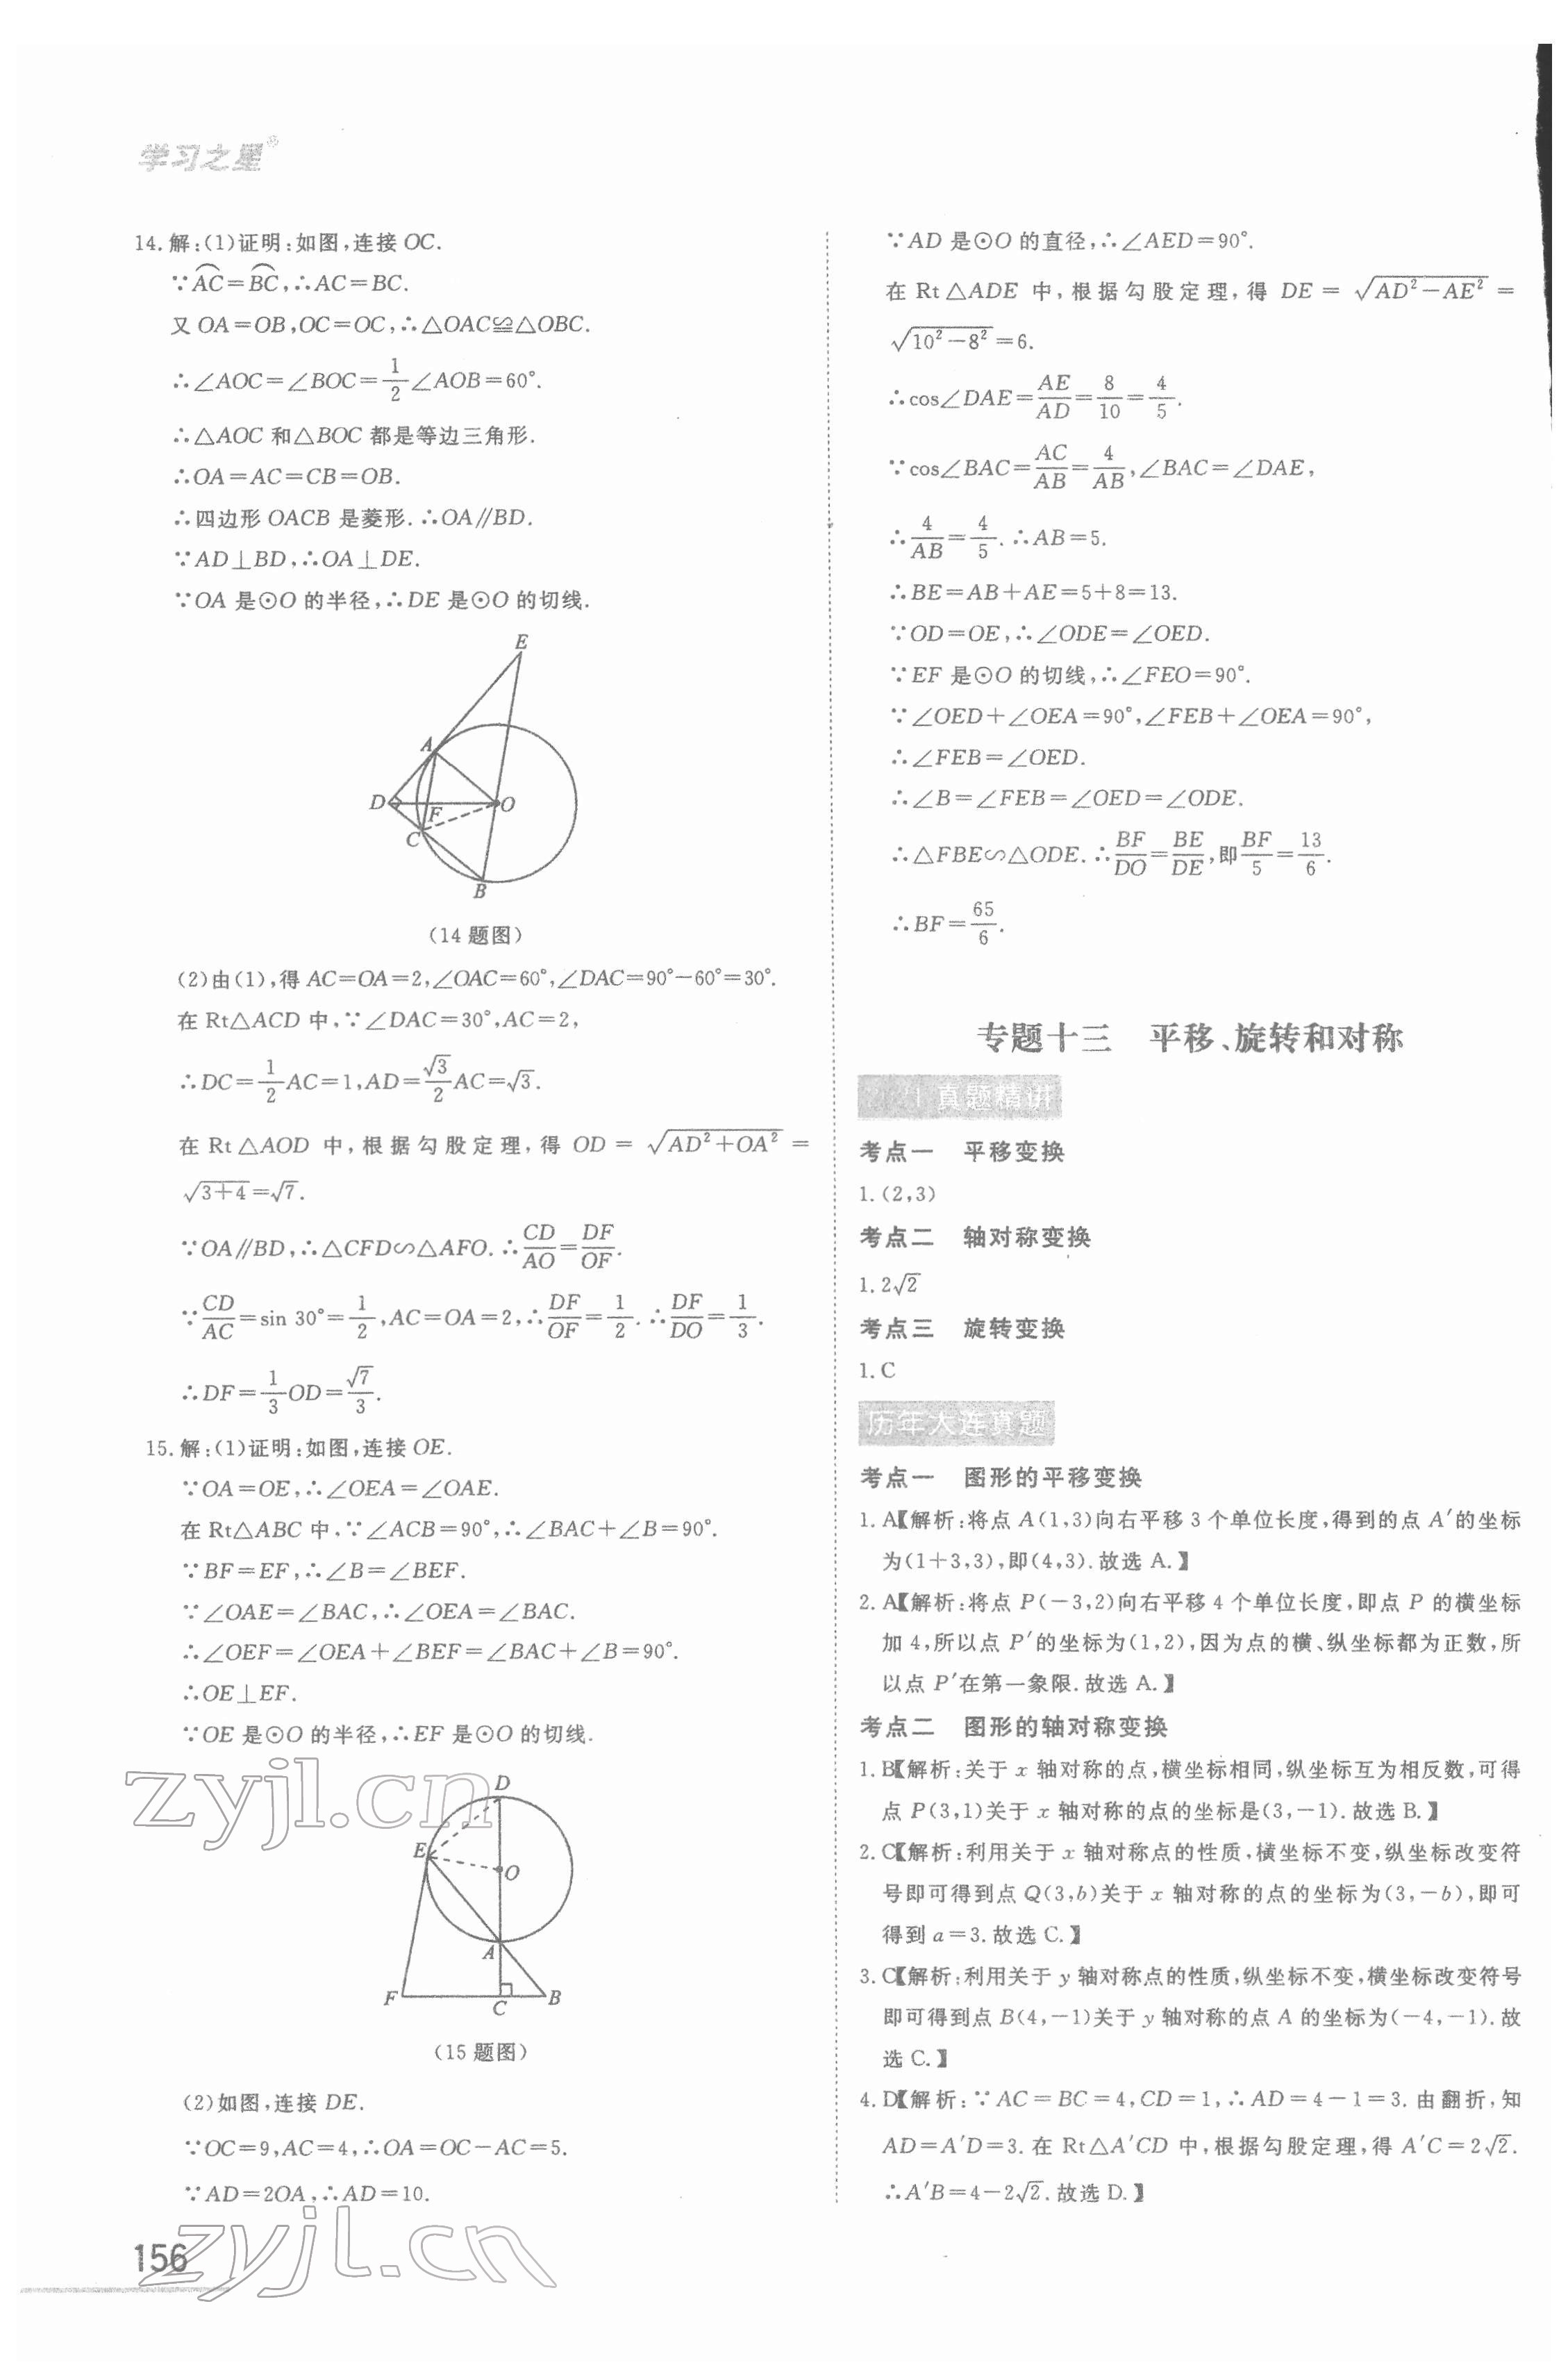 学习之星
14. 解:(1)证明:如图,连接 OC.
∵A͡C=B͡C,∴AC=BC.
又 OA=OB,OC=OC,∴△OAC≌△OBC.
∴∠AOC=∠BOC=1/2∠AOB=60°.
∴△AOC 和△BOC 都是等边三角形.
∴OA=AC=CB=OB.
∴四边形 OACB 是菱形.∴OA∥BD.
∵AD⊥BD,∴OA⊥DE.
∵OA 是⊙O 的半径,∴DE 是⊙O 的切线.
E
A
D
F
O
C
B
(14 题图)
(2)由(1),得 AC=OA=2,∠OAC=60°,∠DAC=90°-60°=30°.
在 Rt△ACD 中,∵∠DAC=30°,AC=2,
∴DC=1/2AC=1,AD=√3/2AC=√3.
在 Rt△AOD 中,根据勾股定理,得 OD=√(AD²+OA²)=
√(3+4)=√7.
∵OA∥BD,∴△CFD∽△AFO.∴CD/AO=DF/OF.
∵CD/AC=sin 30°=1/2,AC=OA=2,∴DF/OF=1/2.∴DF/DO=1/3.
∴DF=1/3OD=√7/3.
15. 解:(1)证明:如图,连接 OE.
∵OA=OE,∴∠OEA=∠OAE.
在 Rt△ABC 中,∵∠ACB=90°,∴∠BAC+∠B=90°.
∵BF=EF,∴∠B=∠BEF.
∵∠OAE=∠BAC,∴∠OEA=∠BAC.
∴∠OEF=∠OEA+∠BEF=∠BAC+∠B=90°.
∴OE⊥EF.
∵OE 是⊙O 的半径,∴EF 是⊙O 的切线.
zyjl.cn
D
E
O
A
F
C
B
(15 题图)
(2)如图,连接 DE.
∵OC=9,AC=4,∴OA=OC-AC=5.
∵AD=2OA,∴AD=10.
zyjl.cn
156
∵AD 是⊙O 的直径,∴∠AED=90°.
在 Rt△ADE 中,根据勾股定理,得 DE=√(AD²-AE²)=
√(10²-8²)=6.
∴cos∠DAE=AE/AD=8/10=4/5.
∵cos∠BAC=AC/AB=4/AB,∠BAC=∠DAE,
∴4/AB=4/5.∴AB=5.
∴BE=AB+AE=5+8=13.
∵OD=OE,∴∠ODE=∠OED.
∵EF 是⊙O 的切线,∴∠FEO=90°.
∵∠OED+∠OEA=90°,∠FEB+∠OEA=90°,
∴∠FEB=∠OED.
∴∠B=∠FEB=∠OED=∠ODE.
∴△FBE∽△ODE.∴BF/DO=BE/DE,即BF/5=13/6.
∴BF=65/6.
专题十三 平移、旋转和对称
真题精讲
考点一 平移变换
1. (2,3)
考点二 轴对称变换
1. 2√2
考点三 旋转变换
1. C
历年大连真题
考点一 图形的平移变换
1. A【解析:将点 A(1,3)向右平移 3 个单位长度,得到的点 A′的坐标
为(1+3,3),即(4,3).故选 A.】
2. A【解析:将点 P(-3,2)向右平移 4 个单位长度,即点 P 的横坐标
加 4,所以点 P′的坐标为(1,2),因为点的横、纵坐标都为正数,所
以点 P′在第一象限.故选 A.】
考点二 图形的轴对称变换
1. B【解析:关于 x 轴对称的点,横坐标相同,纵坐标互为相反数,可得
点 P(3,1)关于 x 轴对称的点的坐标是(3,-1).故选 B.】
2. C【解析:利用关于 x 轴对称点的性质,横坐标不变,纵坐标改变符
号即可得到点 Q(3,b)关于 x 轴对称的点的坐标为(3,-b),即可
得到 a=3.故选 C.】
3. C【解析:利用关于 y 轴对称点的性质,纵坐标不变,横坐标改变符号
即可得到点 B(4,-1)关于 y 轴对称的点 A 的坐标为(-4,-1).故
选 C.】
4. D【解析:∵AC=BC=4,CD=1,∴AD=4-1=3.由翻折,知
AD=A′D=3.在 Rt△A′CD 中,根据勾股定理,得 A′C=2√2.
∴A′B=4-2√2.故选 D.】